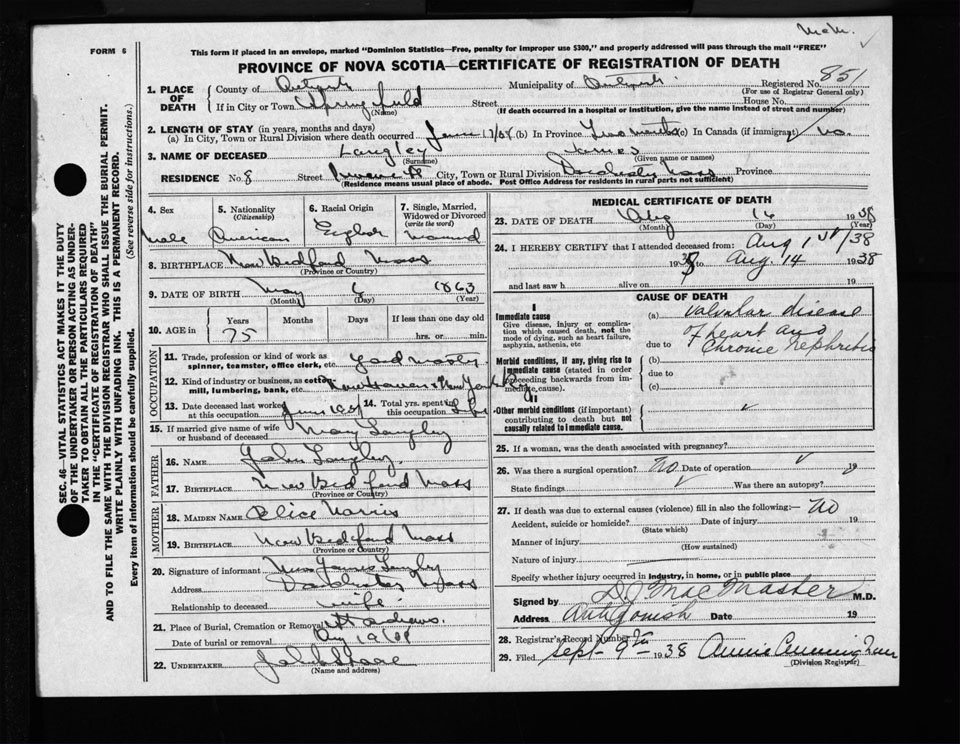 FORM 6
This form if placed in an envelope, marked "Dominion Statistics—Free, penalty for improper use $300," and properly addressed will pass through the mail "FREE"
PROVINCE OF NOVA SCOTIA—CERTIFICATE OF REGISTRATION OF DEATH
Registered No. 851
(For use of Registrar General only)
1. PLACE OF DEATH
County of
Municipality of
If in City or Town Springfield
(Name)
Street
House No.
(If death occurred in a hospital or institution, give the name instead of street and number)
2. LENGTH OF STAY (in years, months and days)
(a) In City, Town or Rural Division where death occurred June 17/38 (b) In Province Two months (c) In Canada (if immigrant) No.
3. NAME OF DECEASED Langley James
(Surname) (Given name or names)
RESIDENCE No. 8 Street City, Town or Rural Division Dorchester Mass Province
(Residence means usual place of abode. Post Office Address for residents in rural parts not sufficient)
4. Sex
Male
5. Nationality
(Citizenship)
American
6. Racial Origin
English
7. Single, Married, Widowed or Divorced
(write the word)
Married
8. BIRTHPLACE New Bedford Mass
(Province or Country)
9. DATE OF BIRTH May 6 1863
(Month) (Day) (Year)
10. AGE in
Years Months Days If less than one day old
75 hrs. or min.
OCCUPATION
11. Trade, profession or kind of work as spinner, teamster, office clerk, etc. Yard master
12. Kind of industry or business, as cotton mill, lumbering, bank, etc. New Haven & New York
13. Date deceased last worked at this occupation June
14. Total yrs. spent in this occupation Life
15. If married give name of wife or husband of deceased Mary Langley
FATHER
16. NAME John Langley
17. BIRTHPLACE New Bedford Mass
(Province or Country)
MOTHER
18. MAIDEN NAME Alice Harris
19. BIRTHPLACE New Bedford Mass
(Province or Country)
20. Signature of informant Mrs James Langley
Address Dorchester Mass
Relationship to deceased wife
21. Place of Burial, Cremation or Removal St Andrews.
Date of burial or removal Aug 19/38
22. UNDERTAKER
(Name and address)
MEDICAL CERTIFICATE OF DEATH
23. DATE OF DEATH Aug 16 1938
(Month) (Day) (Year)
24. I HEREBY CERTIFY that I attended deceased from: Aug 1st /38
1938 to Aug. 14 1938
and last saw h alive on 19
CAUSE OF DEATH
Immediate cause
Give disease, injury or complication which caused death, not the mode of dying, such as heart failure, asphyxia, asthenia, etc
(a) Valvular disease
of heart and
due to Chronic Nephritis
Morbid conditions, if any, giving rise to immediate cause (stated in order proceeding backwards from immediate cause).
(b)
due to
(c)
Other morbid conditions (if important) contributing to death but not causally related to immediate cause.
25. If a woman, was the death associated with pregnancy?
26. Was there a surgical operation? No Date of operation 19
State findings Was there an autopsy?
27. If death was due to external causes (violence) fill in also the following:— No
Accident, suicide or homicide? Date of injury 19
(State which)
Manner of injury
(How sustained)
Nature of injury
Specify whether injury occurred in industry, in home, or in public place
Signed by MacMaster M.D.
Address Antigonish Date 19
28. Registrar's Record Number
29. Filed Sept 9th 1938 Annie Cunningham
(Division Registrar)
SEC. 46—VITAL STATISTICS ACT MAKES IT THE DUTY
OF THE UNDERTAKER OR PERSON ACTING AS UNDER-
TAKER TO OBTAIN ALL THE PARTICULARS REQUIRED
IN THE "CERTIFICATE OF REGISTRATION OF DEATH"
AND TO FILE THE SAME WITH THE DIVISION REGISTRAR WHO SHALL ISSUE THE BURIAL PERMIT.
WRITE PLAINLY WITH UNFADING INK. THIS IS A PERMANENT RECORD.
Every item of information should be carefully supplied. (See reverse side for instructions.)